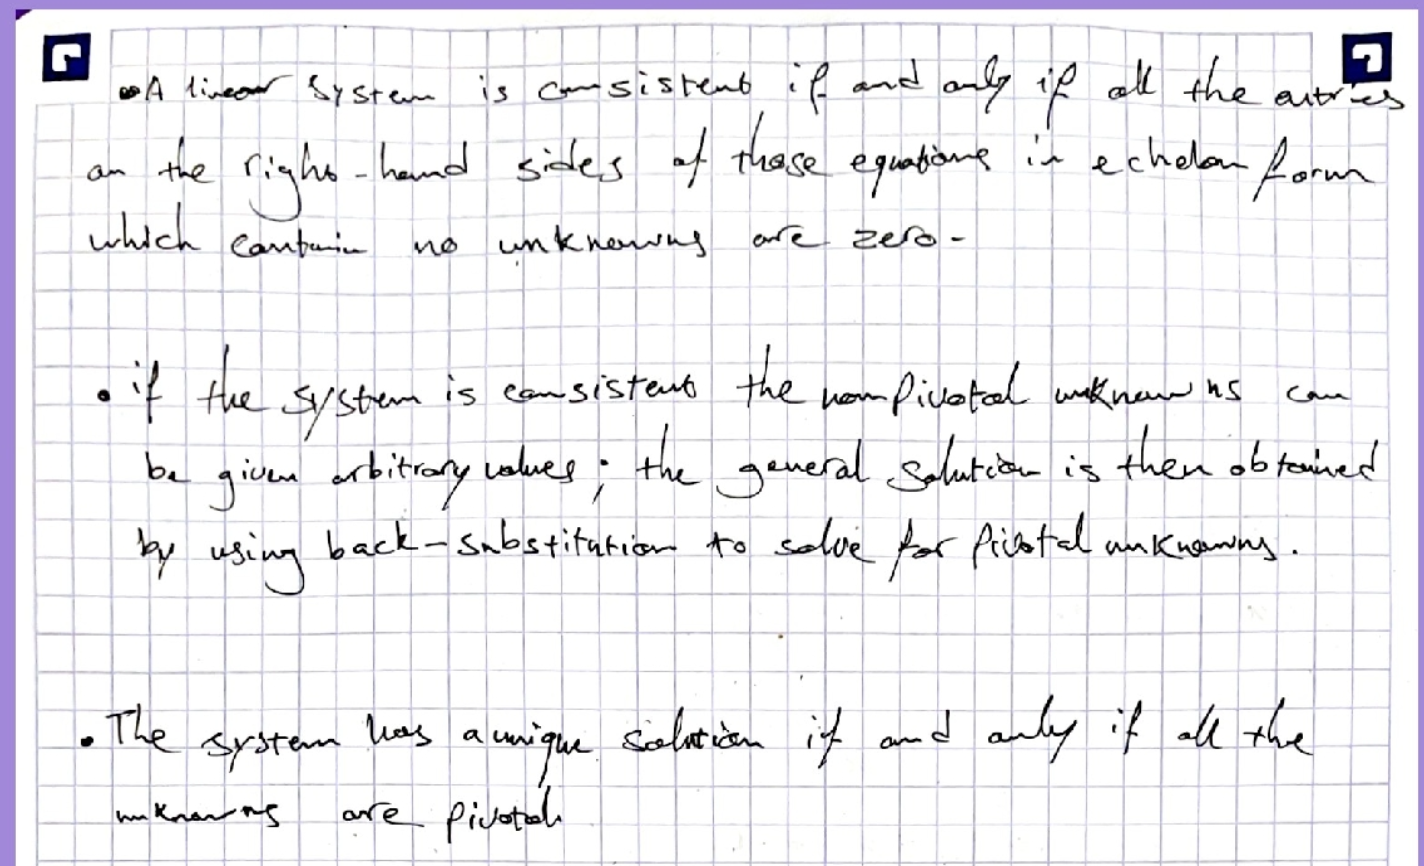 • A linear system is consistent if and only if all the entries
on the right-hand sides of those equations in echelon form
which contain no unknowns are zero.
• if the system is consistent the nonpivotal unknowns can
be given arbitrary values; the general solution is then obtained
by using back-substitution to solve for pivotal unknowns.
• The system has a unique solution if and only if all the
unknowns are pivotal